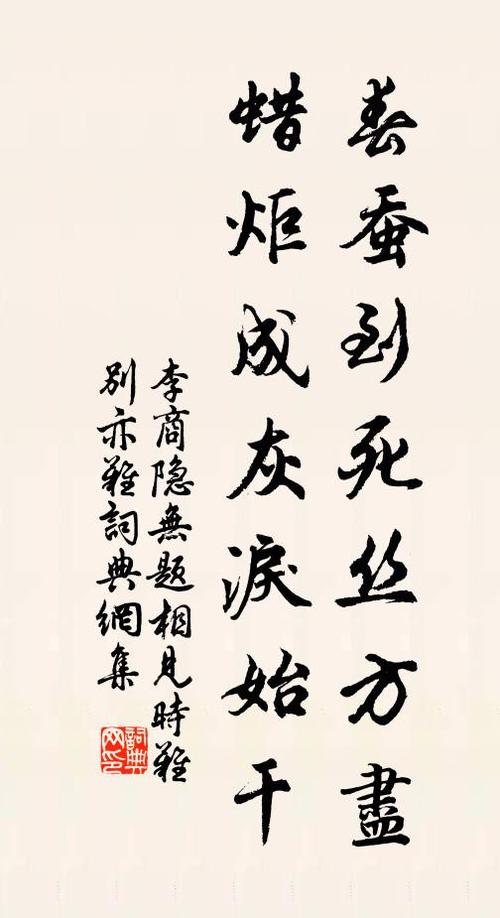 春蚕到死丝方盡
蜡炬成灰淚始干
李商隐無題相見時難
別亦難詞典網集
詞典
网印